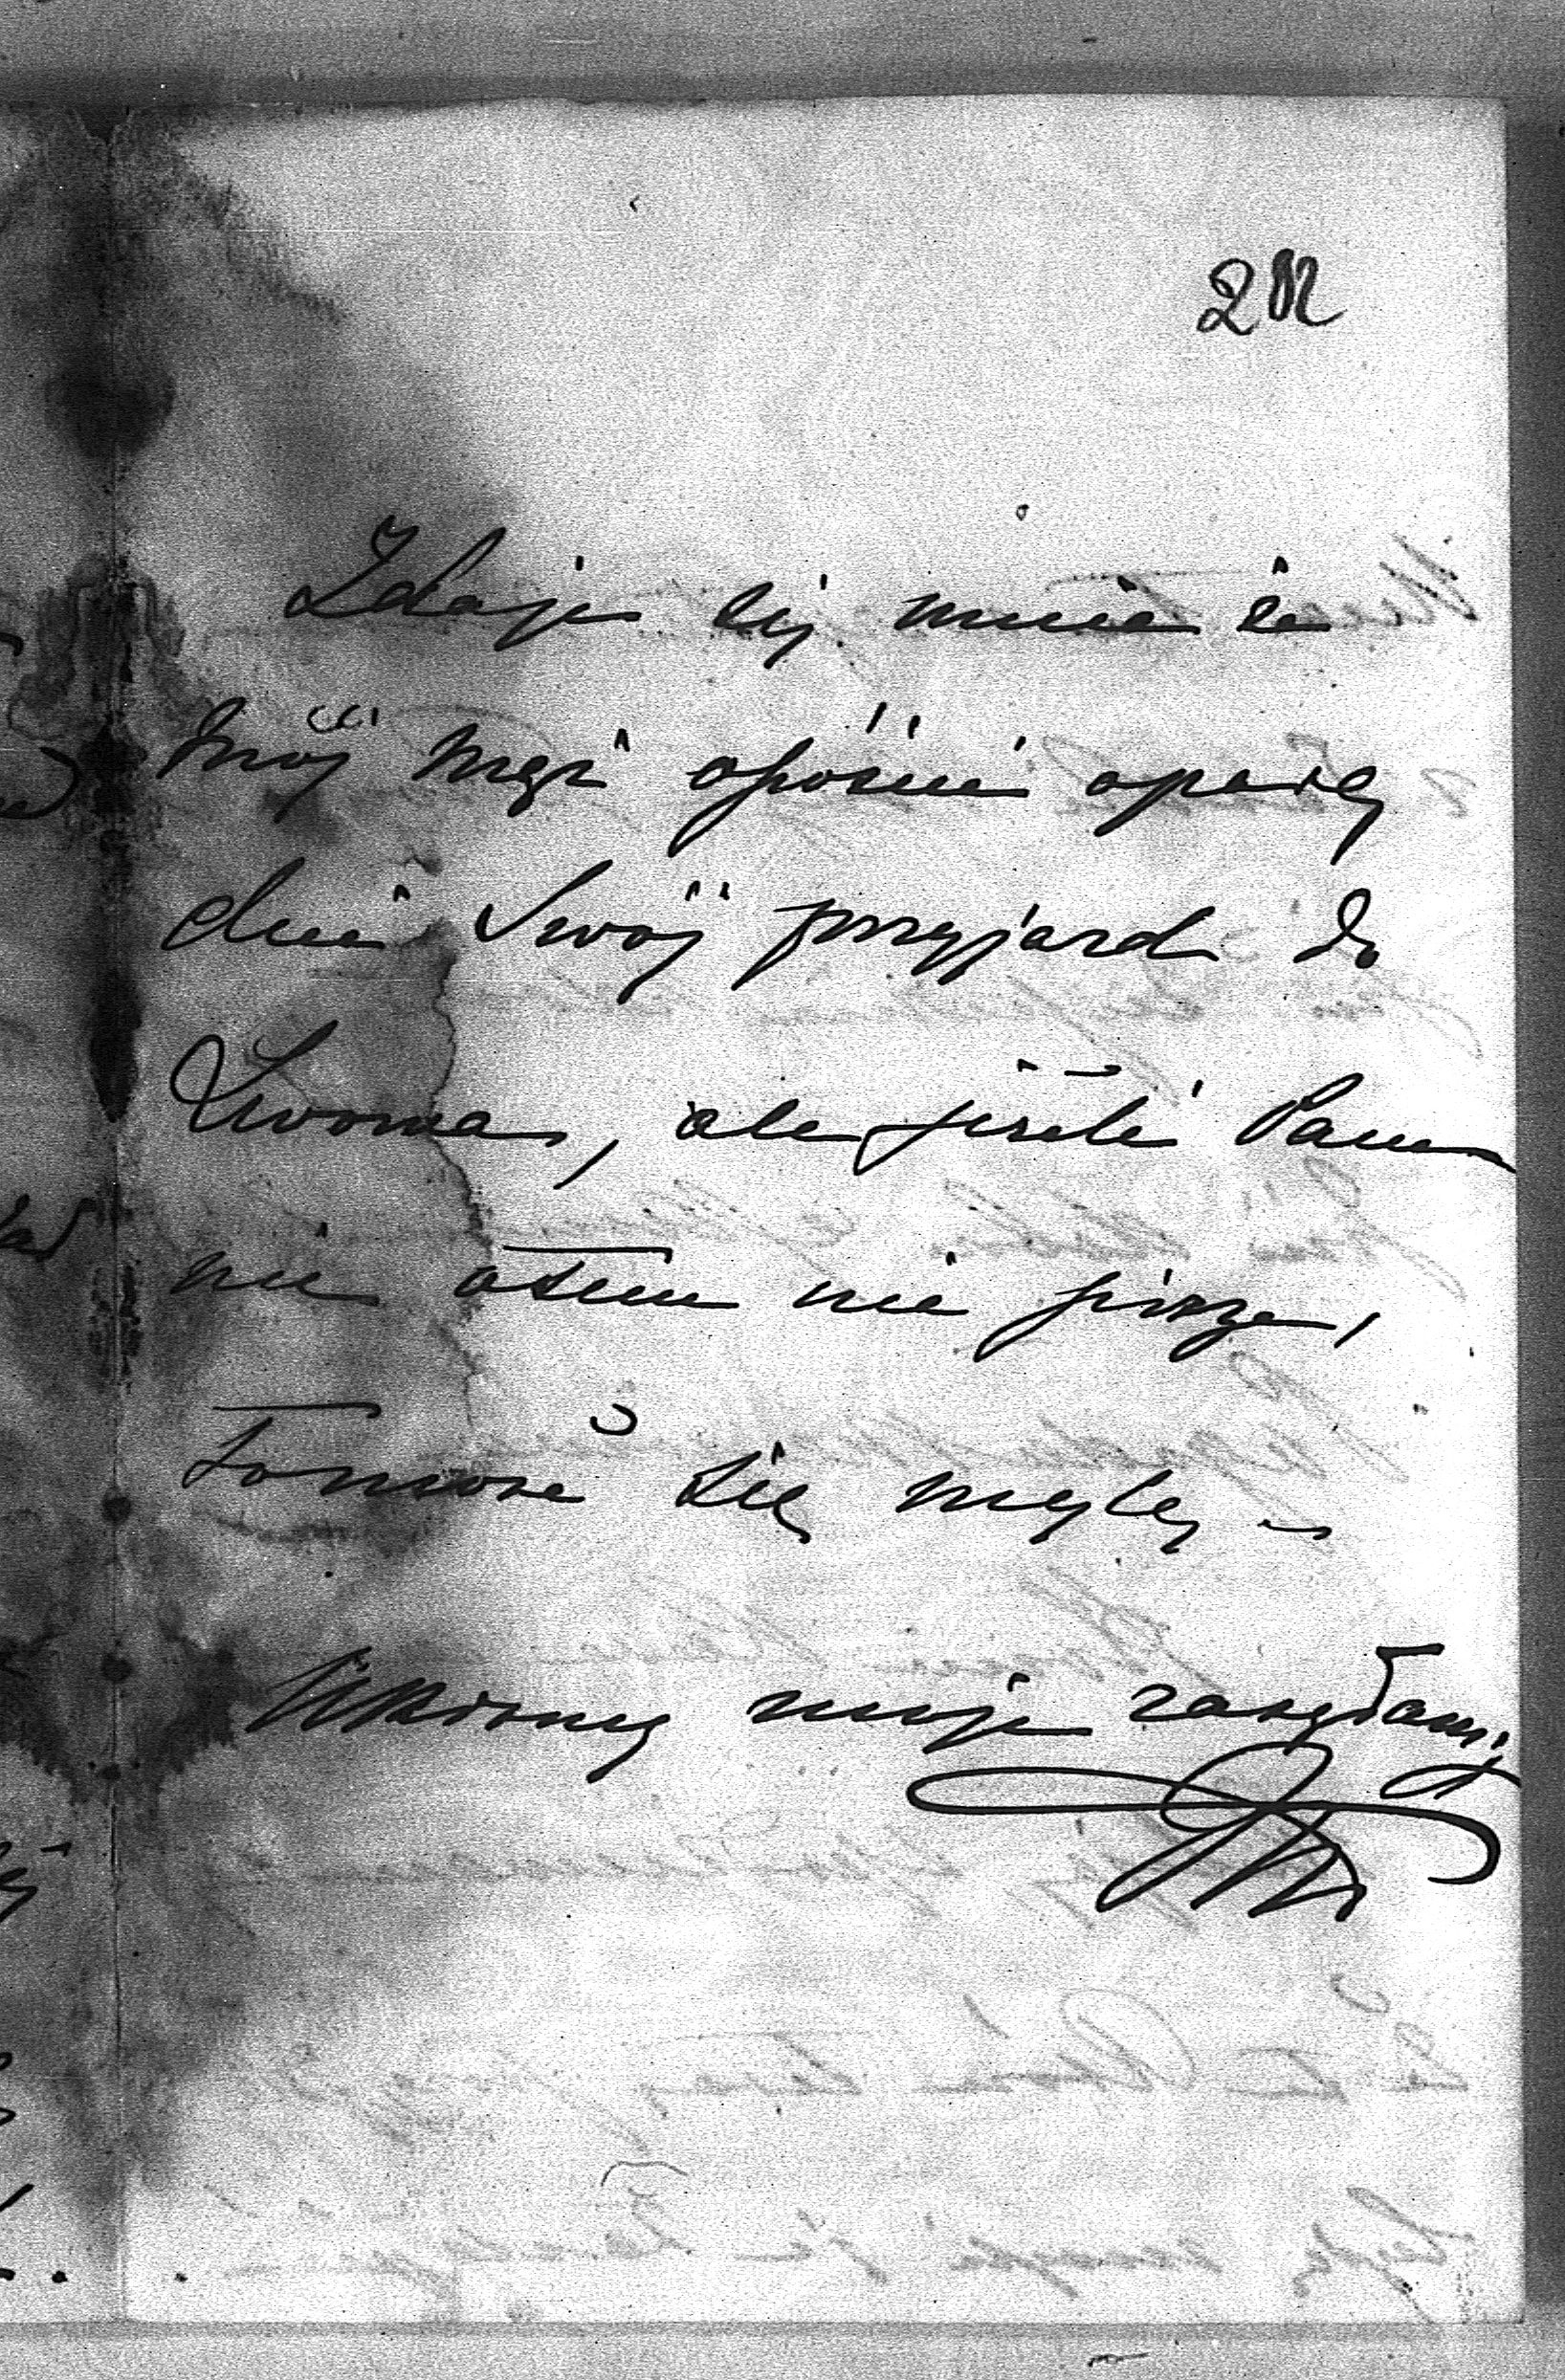 212
Zdaje się mnie że
mój mąż opóźni o parę
dni swój przyjazd do
Lwowa, ale jeżeli Panu
nie otem nie pisze,
to może się mylę –
Ukłony moje zasyłam